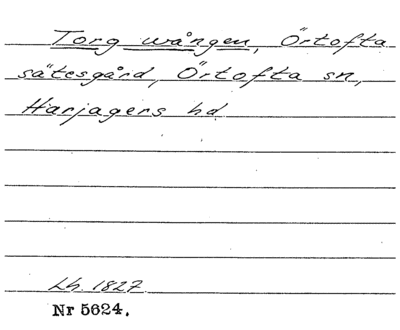 Torg wången, Örtofta
sätesgård, Örtofta sn,
Harjagers hd
Lh. 1827
Nr 5624.